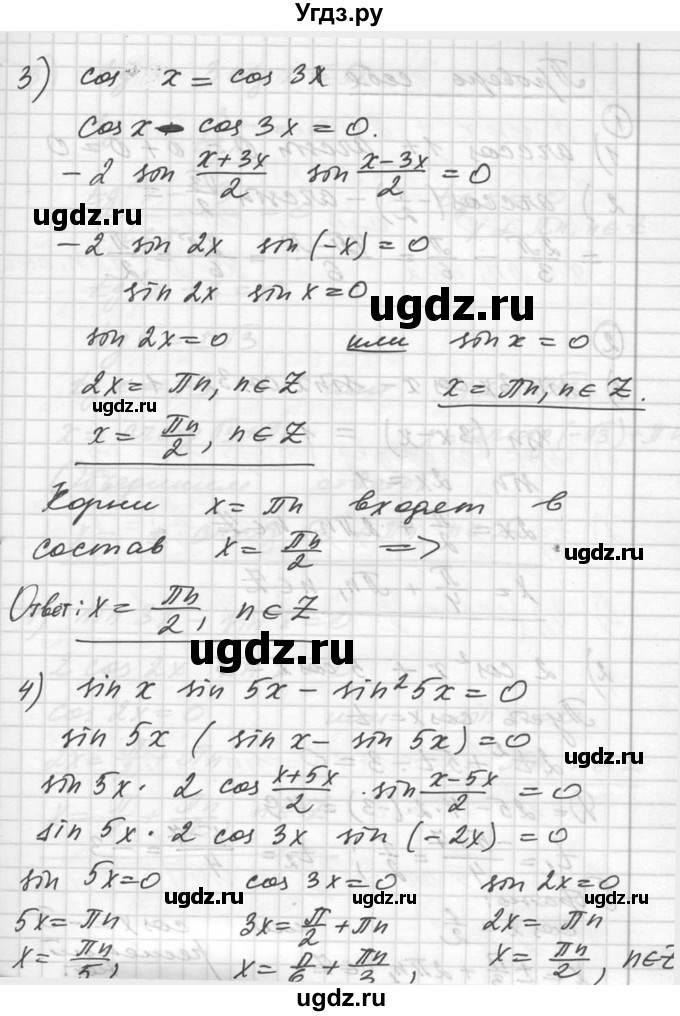 Угдз.ру
3) cos x = cos 3x
cos x - cos 3x = 0.
-2 sin (x+3x)/2 sin (x-3x)/2 = 0
ugdz.ru ugdz.ru
-2 sin 2x sin (-x) = 0
sin 2x sin x = 0
ugdz.ru
sin 2x = 0 или sin x = 0
2x = πn, n ∈ Z x = πn, n ∈ Z.
ugdz.ru
x = πn/2, n ∈ Z
Корни x = πn входят в
состав x = πn/2 =>
Ответ: x = πn/2, n ∈ Z
ugdz.ru
4) sin x sin 5x - sin² 5x = 0
sin 5x (sin x - sin 5x) = 0
ugdz.ru
sin 5x · 2 cos (x+5x)/2 · sin (x-5x)/2 = 0
sin 5x · 2 cos 3x sin (-2x) = 0
sin 5x = 0 cos 3x = 0 sin 2x = 0
ugdz.ru ugdz.ru
5x = πn 3x = π/2 + πn 2x = πn
x = πn/5, x = π/6 + πn/3, x = πn/2, n ∈ Z
ugdz.ru